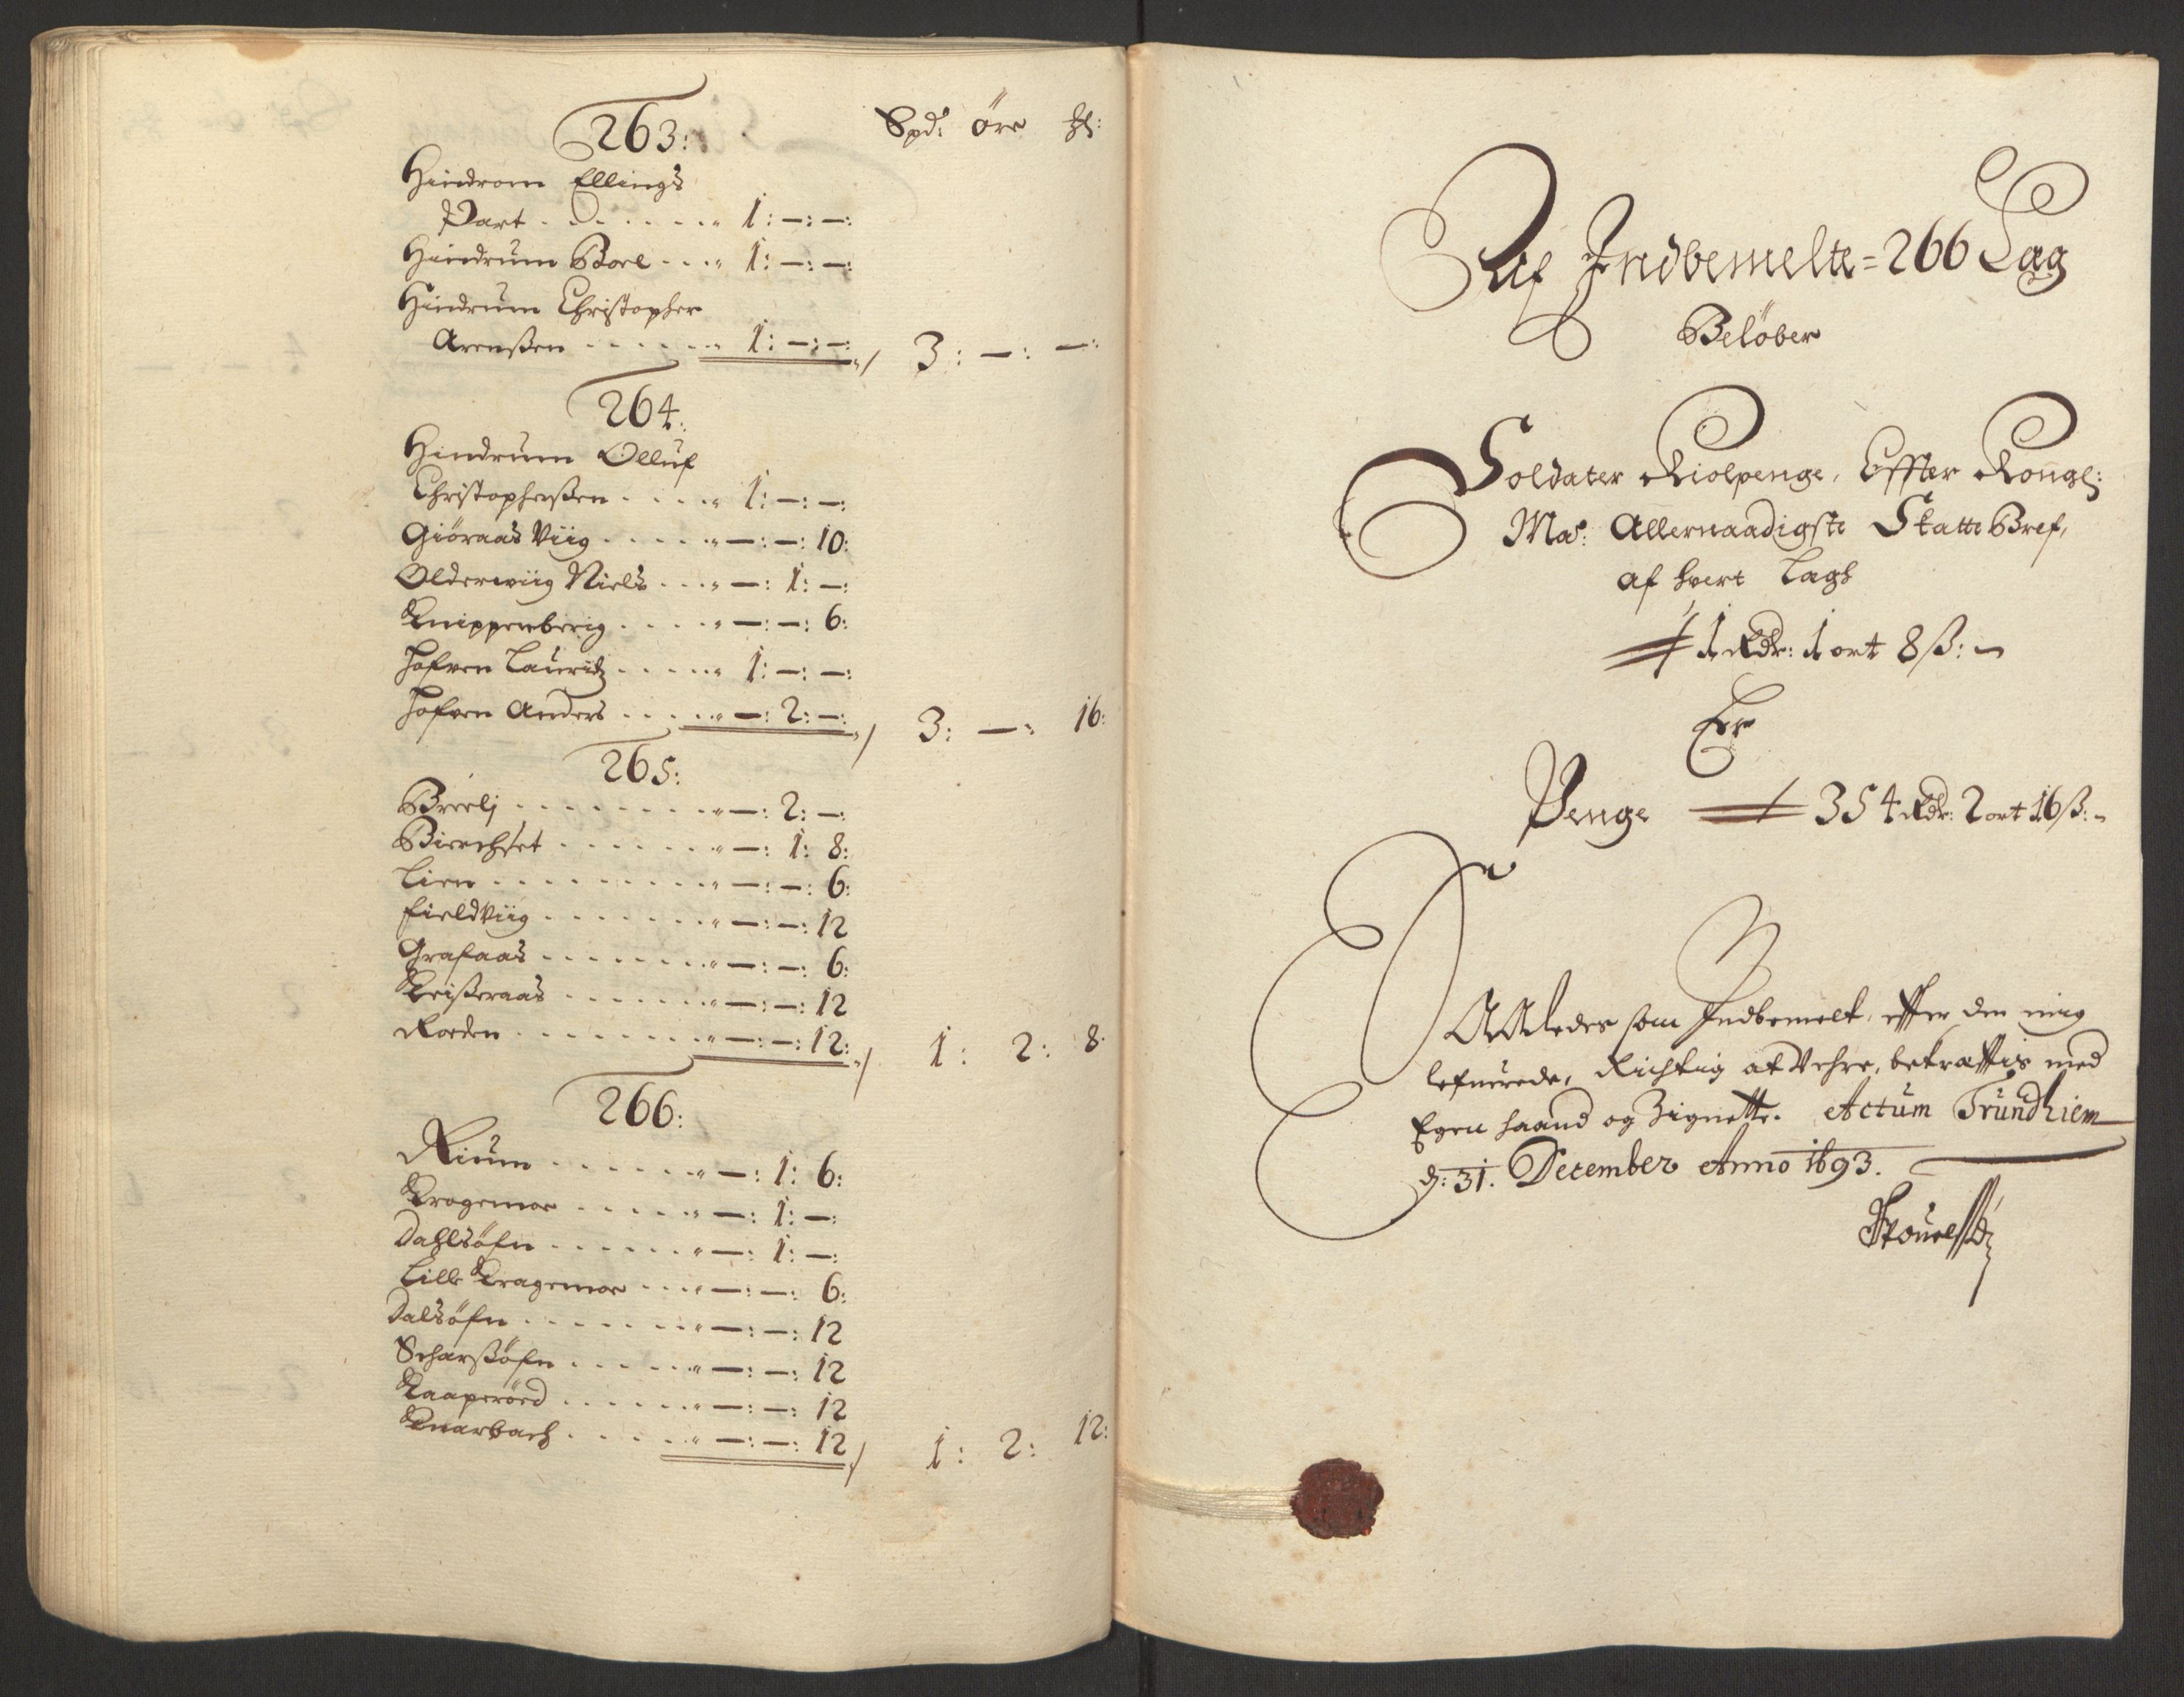 263:
Spd: öre ₰:
Hindrom Ellings
Part . . . . . . . 1: —: —:
Hindrum Boel . . . 1: —: —:
Hindrum Christopher
Arenßen . . . . . . 1: —: —: / 3: —: —:
264:
Hindrum Olluf
Christophersßen . . . . 1: —: —:
Giöraas Viig . . . . . —: —: 10:
Olderwiig Niels . . . —: 1: —:
Knippenberig . . . . —: —: 6:
Hofven Lauritz . . . . . 1: —: —:
Hofven Anders . . . . . —: 2: —: / 3: —: 16:
265:
Breelj . . . . . . . . —: 2: —:
Bierchset . . . . . . . —: 1: 8:
Lien . . . . . . . . . —: —: 6:
Fieldviig . . . . . . . —: —: 12
Grafaas . . . . . . . . —: —: 6:
Keißeraas . . . . . . . —: —: 12
Roeden . . . . . . . . —: —: 12: / 1: 2: 8:
266:
Rium . . . . . . . —: 1: 6:
Kragemoe . . . . . —: 1: —:
Dahlsöfn . . . . . . —: 1: —:
Lille Kragemoe . . . —: —: 6:
Dalsöfn . . . . . . . —: —: 12
Scharsöfn . . . . . . —: —: 12
Kaaperöed . . . . . . —: —: 12
Knarbach . . . . . —: —: 12 / 1: 2: 12:
Af Indbemelte = 266 Lag
Belöber
Soldater Kiolpenge, Effter Kongl:
Mas: Allernaadigste Skatte Bref,
af hvert Lagh
1 Rdr: 1 ort 8 ß: –
Er
Penge 354 Rdr: 2 ort 16 ß: –
Saaledes som Indbemelt, effter den mig
lefverede, Richtig at Vehre, bekræfftis med
Egen haand og Zignette. Actum Trundhiem
d: 31. December Anno 1693.